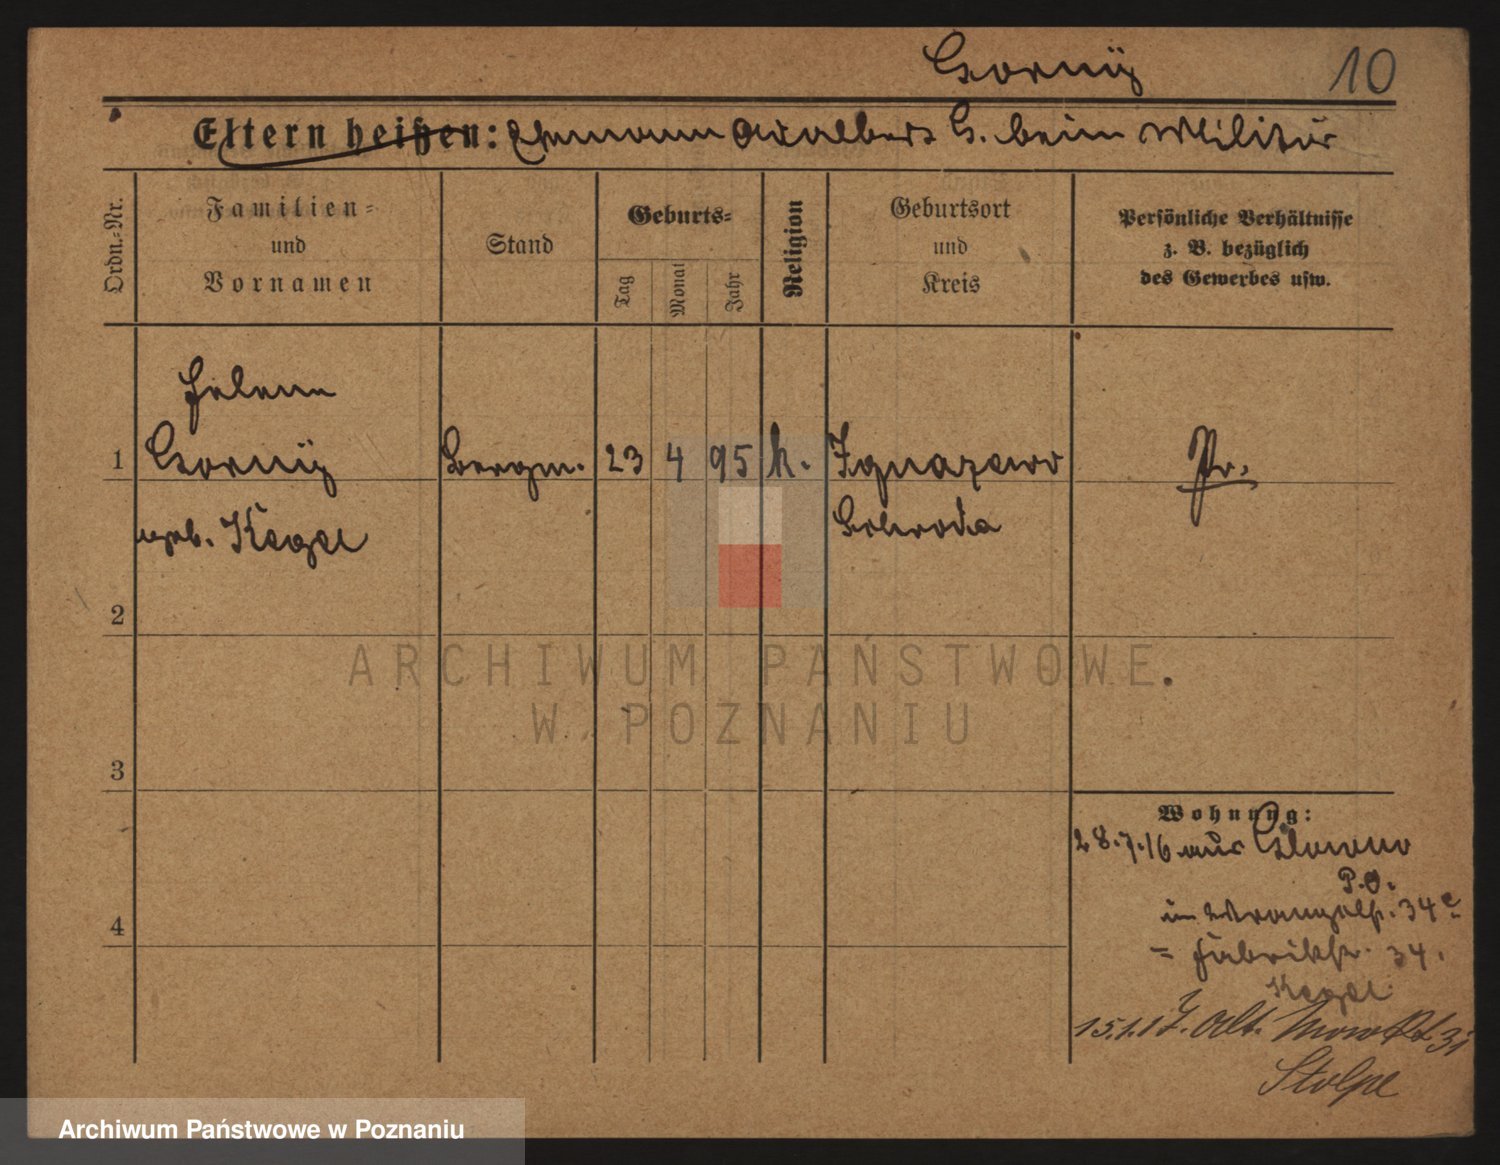 Gorny
10
Eltern heißen: Ehemann Adalbert G. beim Militär
Ordn.-Nr.
Familien-
und
Vornamen
Stand
Geburts-
Tag
Monat
Jahr
Religion
Geburtsort
und
Kreis
Persönliche Verhältnisse
z. B. bezüglich
des Gewerbes usw.
Helene
1 Gorny Bergm. 23 4 95 k. Ignazewo Pr.
geb. Kegel Schroda
2
3
4
Wohnung:
28.7.16 aus Glowno
P.O.
in Wrangelstr. 34
= Fabrikstr. 34.
Kegel
15.1.17. Alt. 31
Stolpe
ARCHIWUM PAŃSTWOWE
W POZNANIU
Archiwum Państwowe w Poznaniu